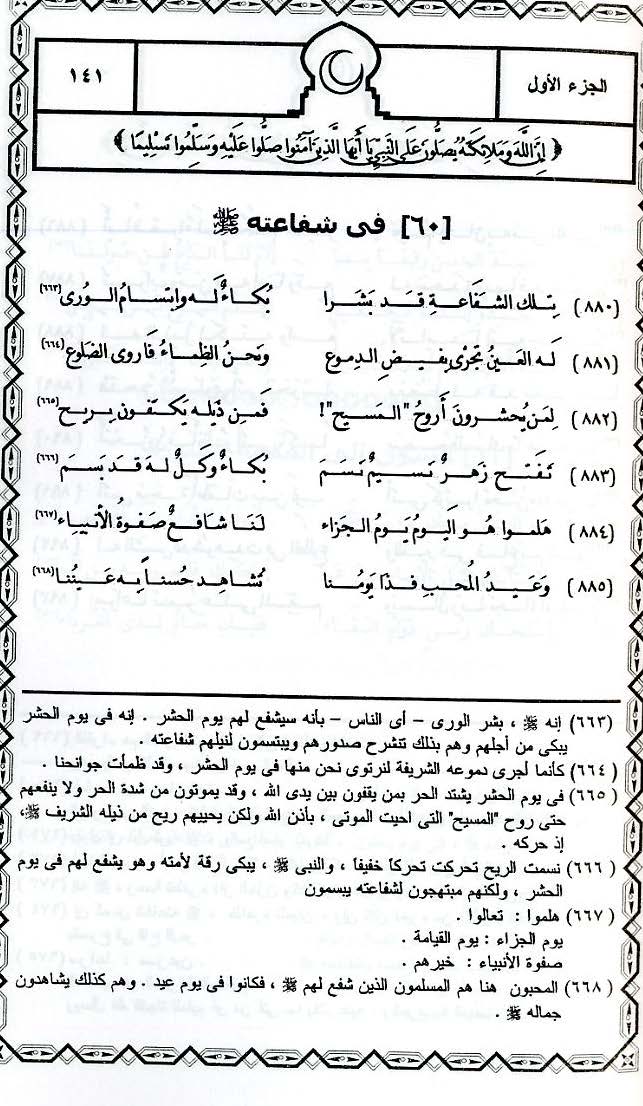 الجزء الأول
١٤١
﴿ إِنَّ اللَّهَ وَمَلَائِكَتَهُ يُصَلُّونَ عَلَى النَّبِيِّ يَا أَيُّهَا الَّذِينَ آمَنُوا صَلُّوا عَلَيْهِ وَسَلِّمُوا تَسْلِيمًا ﴾
[٦٠] فى شفاعته ﷺ
(٨٨٠) تِلك الشفَاعةِ قَد بَشَرا بُكاءٌ لَه وابتسامُ الوَرى (٦٦٣)
(٨٨١) لَه العَينُ تجرى بفَيضِ الدموع ونَحنُ الظِماءُ فأروى الضلوع (٦٦٤)
(٨٨٢) لِمَن يُحشرونَ أَروحُ "المَسيح"! فمِن ذيله يَكتفون بريح (٦٦٥)
(٨٨٣) تَفَتح زهرٌ نَسيمٌ نَسَم بُكاءٌ وَكلٌ له قد بَسَم (٦٦٦)
(٨٨٤) هَلموا هُو اليَومُ يَومُ الجَزاء لَنَا شافعٌ صَفوةُ الأنبياء (٦٦٧)
(٨٨٥) وَعَيدُ المُحبِ فذا يَومُنا تُشاهد حُسناً به عَينُنا (٦٦٨)
(٦٦٣) إنه ﷺ ، بشر الورى – أى الناس – بأنه سيشفع لهم يوم الحشر . إنه فى يوم الحشر
يبكى من أجلهم وهم بذلك تنشرح صدورهم ويبتسمون لنيلهم شفاعته .
(٦٦٤) كأنما أجرى دموعه الشريفة لنرتوى نحن منها فى يوم الحشر ، وقد ظمأت جوانحنا .
(٦٦٥) فى يوم الحشر يشتد الحر بمن يقفون بين يدى الله ، وقد يموتون من شدة الحر ولا ينفعهم
حتى روح "المسيح" التى احيت الموتى ، بأذن الله ولكن يحييهم ريح من ذيله الشريف ﷺ،
إذ حركه .
(٦٦٦) نسمت الريح تحركت تحركاً خفيفاً ، والنبى ﷺ ، يبكى رقة لأمته وهو يشفع لهم فى يوم
الحشر ، ولكنهم مبتهجون لشفاعته يبسمون
(٦٦٧) هلموا : تعالوا .
يوم الجزاء : يوم القيامة .
صفوة الأنبياء : خيرهم .
(٦٦٨) المحبون هنا هم المسلمون الذين شفع لهم ﷺ ، فكانوا فى يوم عيد . وهم كذلك يشاهدون
جماله ﷺ .